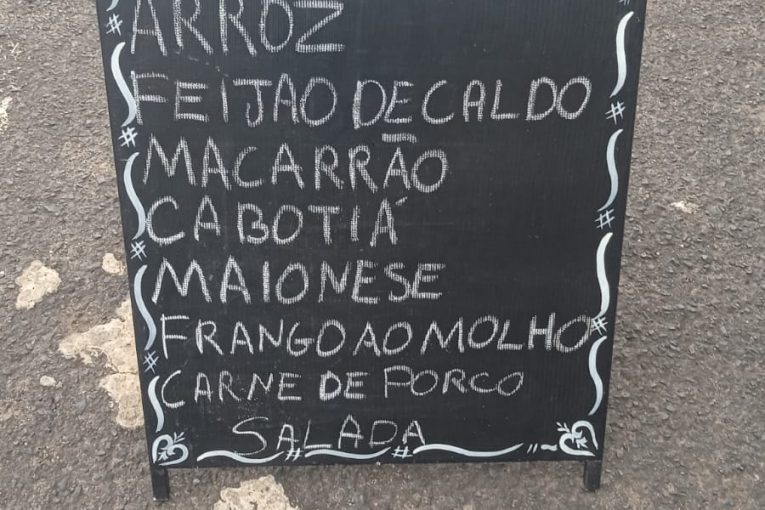 ARROZ
FEIJAO DE CALDO
MACARRÃO
CABOTIÁ
MAIONESE
FRANGO AO MOLHO
CARNE DE PORCO
SALADA